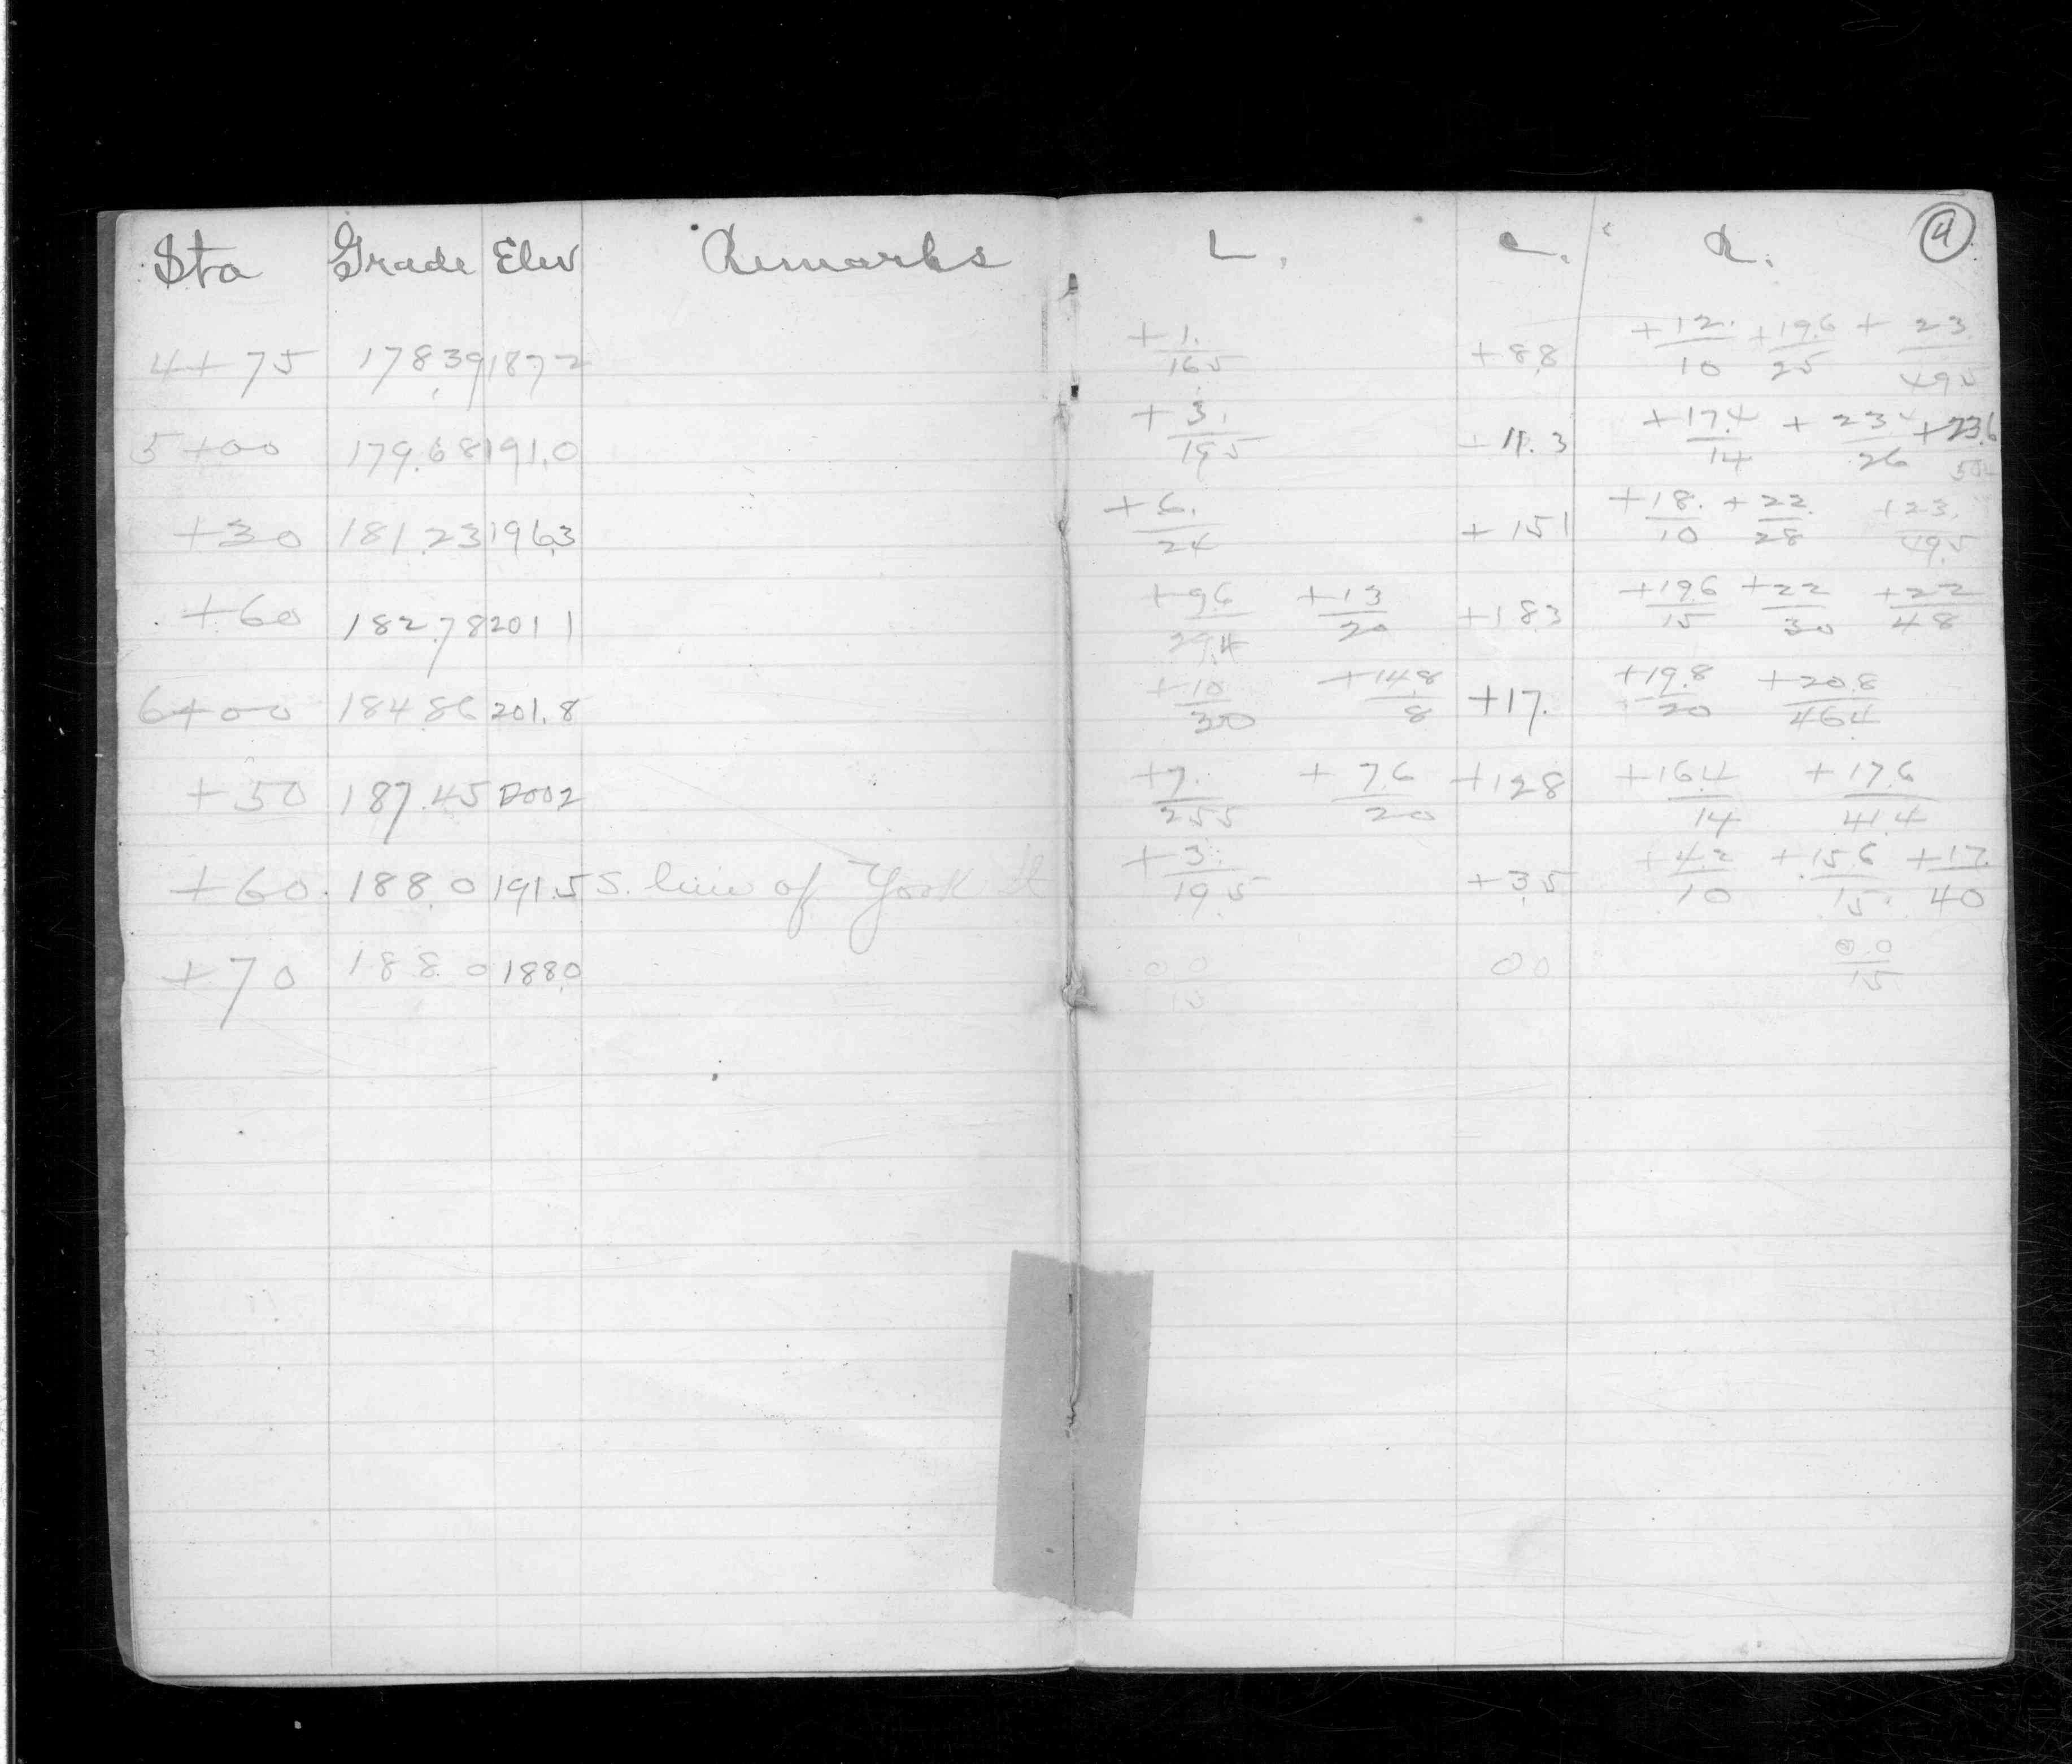 Sta Grade Elev Remarks L. C. R. 4
4+75 178.39 187.2 +1./16.5 +8.8 +12./10 +19.6/25 +23./49.5
5+00 179.68 191.0 +3./19.5 +11.3 +17.4/14 +23/26 +23.6
+30 181.23 196.3 +6./24 +15.1 +18./10 +22./28 +23./49.5
+60 182.78 201.1 +9.6/29.4 +13/20 +18.3 +19.6/15 +22/30 +22/48
6+00 184.86 201.8 +10/30 +14.8/8 +17. +19.8/20 +20.8/46.4
+50 187.45 200.2 +7./25.5 +7.6/20 +12.8 +16.4/14 +17.6/41.4
+60 188.0 191.5 S. line of York St +3./19.5 +3.5 +4.2/10 +15.6/15 +17./40
+70 188.0 188.0 0.0/15 0.0 0.0/15